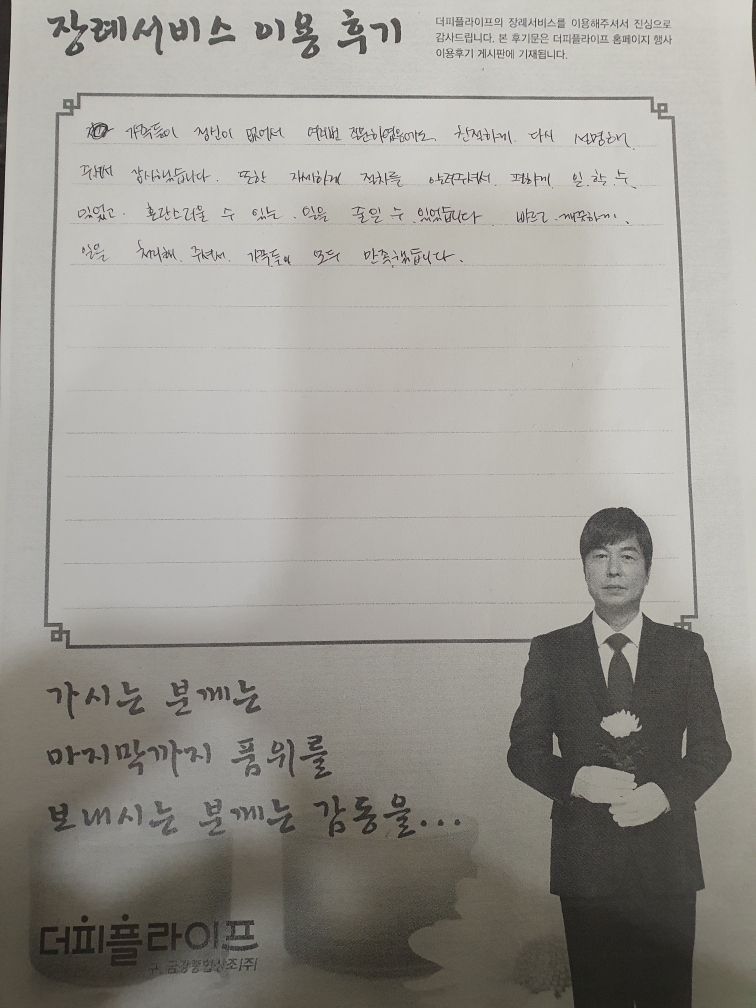 장례서비스 이용 후기
더피플라이프의 장례서비스를 이용해주셔서 진심으로
감사드립니다. 본 후기문은 더피플라이프 홈페이지 행사
이용후기 게시판에 기재됩니다.
가족들이 정신이 없어서 여러번 질문하였음에도 친절하게 다시 설명해
주셔서 감사했습니다. 또한 자세하게 절차를 알려주셔서 편하게 일 할 수
있었고. 혼란스러울 수 있는 일을 줄일 수 있었습니다 바르고 깨끗하게
일을 처리해 주셔서 가족들이 모두 만족했습니다.
가시는 분께는
마지막까지 품위를
보내시는 분께는 감동을...
더피플라이프
구. 금강종합상조(주)